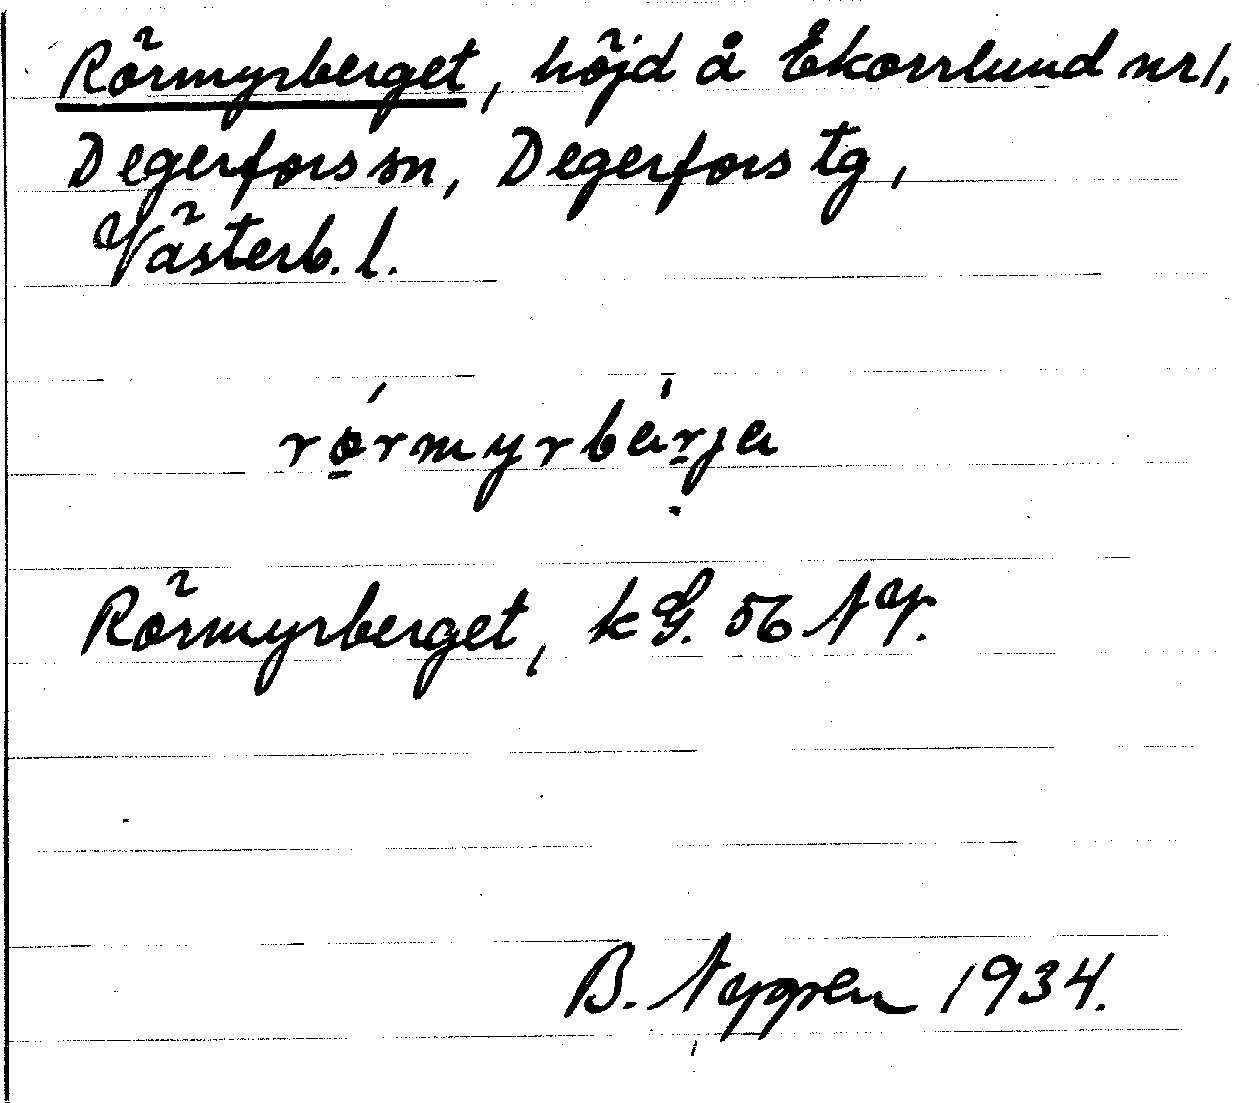 Rörmyrberget, höjd å Ekorrlund nr 1,
Degerfors sn, Degerfors tg,
Västerb. l.
rørmyrbärja
Rörmyrberget, kG. 56 NV.
B. Nygren 1934.